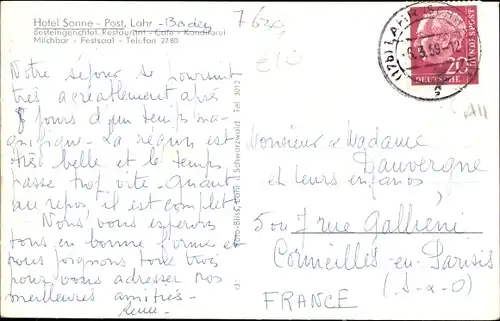 Hotel Sonne - Post, Lahr - Baden
Besteingerichtet. Restaurant - Café - Konditorei
Milchbar - Festsaal - Telefon 2780
Notre séjour se poursuit
très agréablement après
8 jours d'un temps ma-
gnifique. La région est
très belle et le temps
passe trop vite. Quant
au repos, il est complet
Nous vous espérons
tous en bonne forme et
nous joignons tous trois
pour vous adresser nos
meilleures amitiés.
Foto-Bliss, Lahr i. Schwarzwald Tel. 3012
LAHR
6.3.59-12
DEUTSCHE
BUNDESPOST
20
Monsieur et Madame
Dauvergne
et leurs enfants
5 ou 7 rue Gallieni
Cormeilles-en-Parisis
(S-&-O)
FRANCE